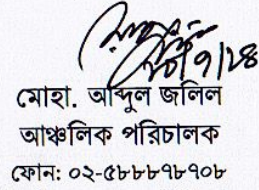 মোহা. আব্দুল জলিল
আঞ্চলিক পরিচালক
ফোন: ০২-৫৮৮৮৭৮৭০৮